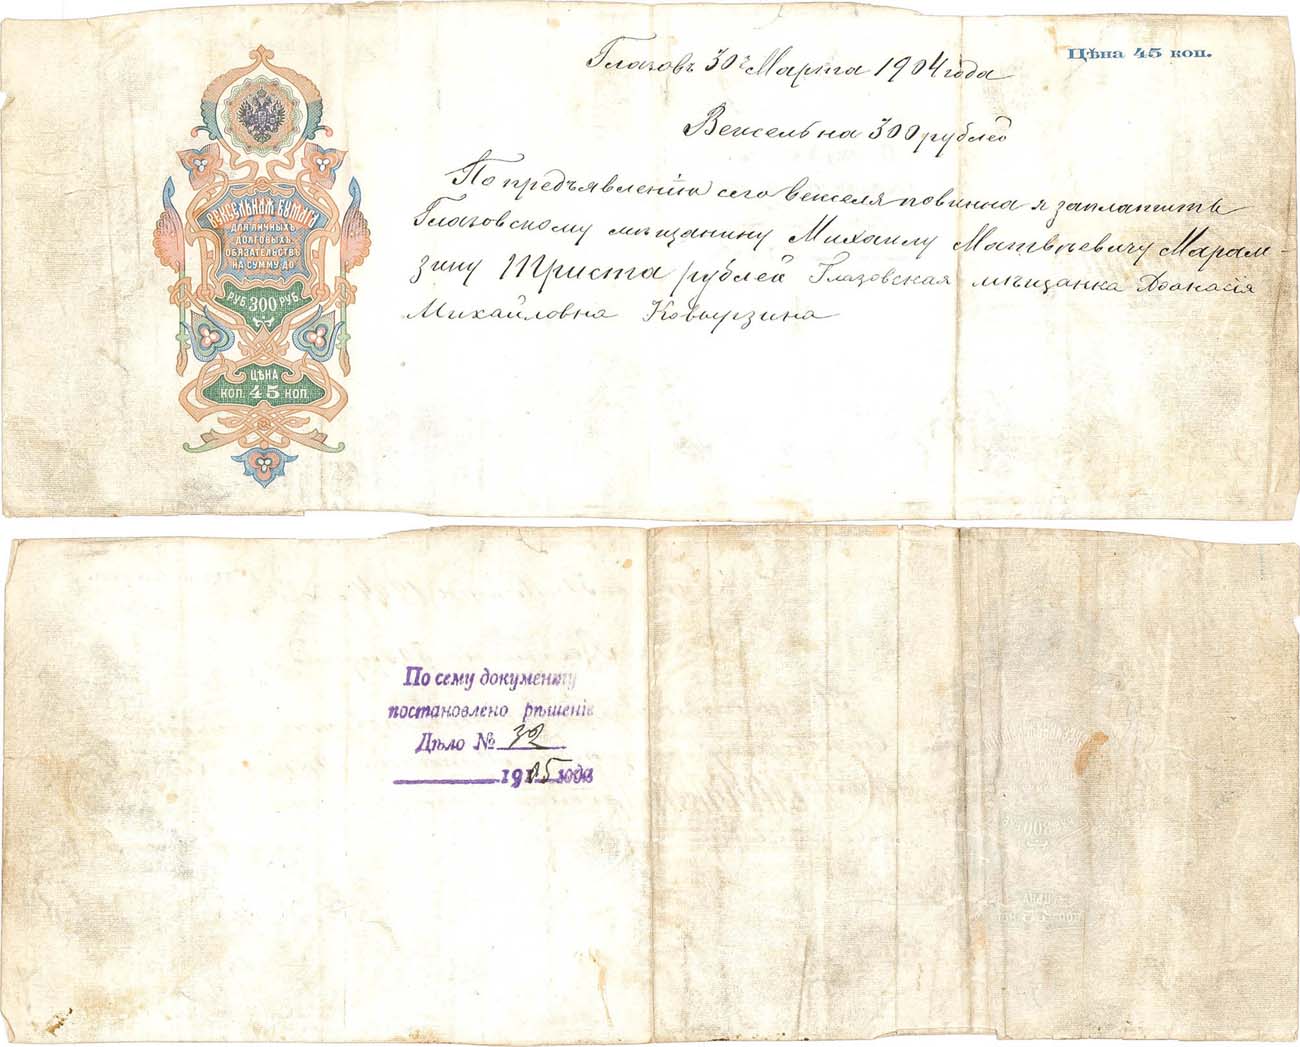 Цѣна 45 коп.
Глазовъ 30 Марта 1904 года
Вексель на 300 рублей
По предъявленію сего векселя повинна я заплатить
Глазовскому мѣщанину Михаилу Матвѣевичу Марам-
зину Триста рублей Глазовская мѣщанка Афанасія
Михайловна Ковырзина
ВЕКСЕЛЬНАЯ БУМАГА
ДЛЯ ЛИЧНЫХЪ
ДОЛГОВЫХЪ
ОБЯЗАТЕЛЬСТВЪ
НА СУММУ ДО
РУБ. 300 РУБ.
ЦѢНА
КОП. 45 КОП.
По сему документу
постановлено рѣшеніе
Дѣло №
1905 года